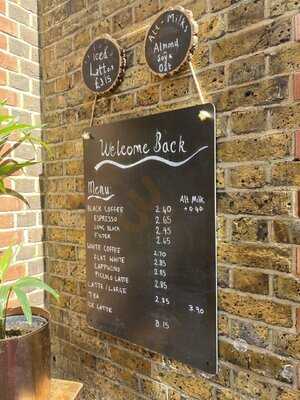 Iced
Latton
£3.15
Alt - Milks
Almond
Soya
Oat
Welcome Back
Menu
Alt Milk
+ 0.40
BLACK COFFEE 2.40
ESPRESSO 2.65
LONG BLACK 2.45
FILTER 2.65
WHITE COFFEE 2.70
FLAT WHITE 2.85
CAPPUCINO 2.85
PICCOLO LATTE 2.85
LATTE / LARGE 2.85 3.90
TEA 2.85
ICE LATTE 3.15